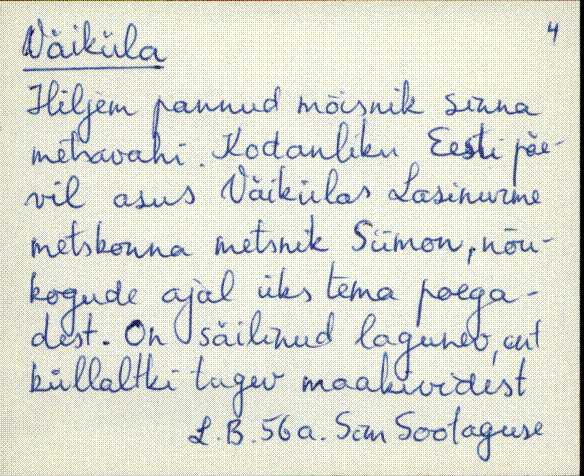 4
Väiküla
Hiljem pannud mõisnik sinna
metsavahi. Kodanliku Eesti päe-
vil asus Väikülas Lasinurme
metskonna metsnik Siimon, nõu-
kogude ajal üks tema poega-
dest. On säilinud lagunev, ent
küllaltki tugev maakividest
L.B. 56 a. Sim Sootaguse